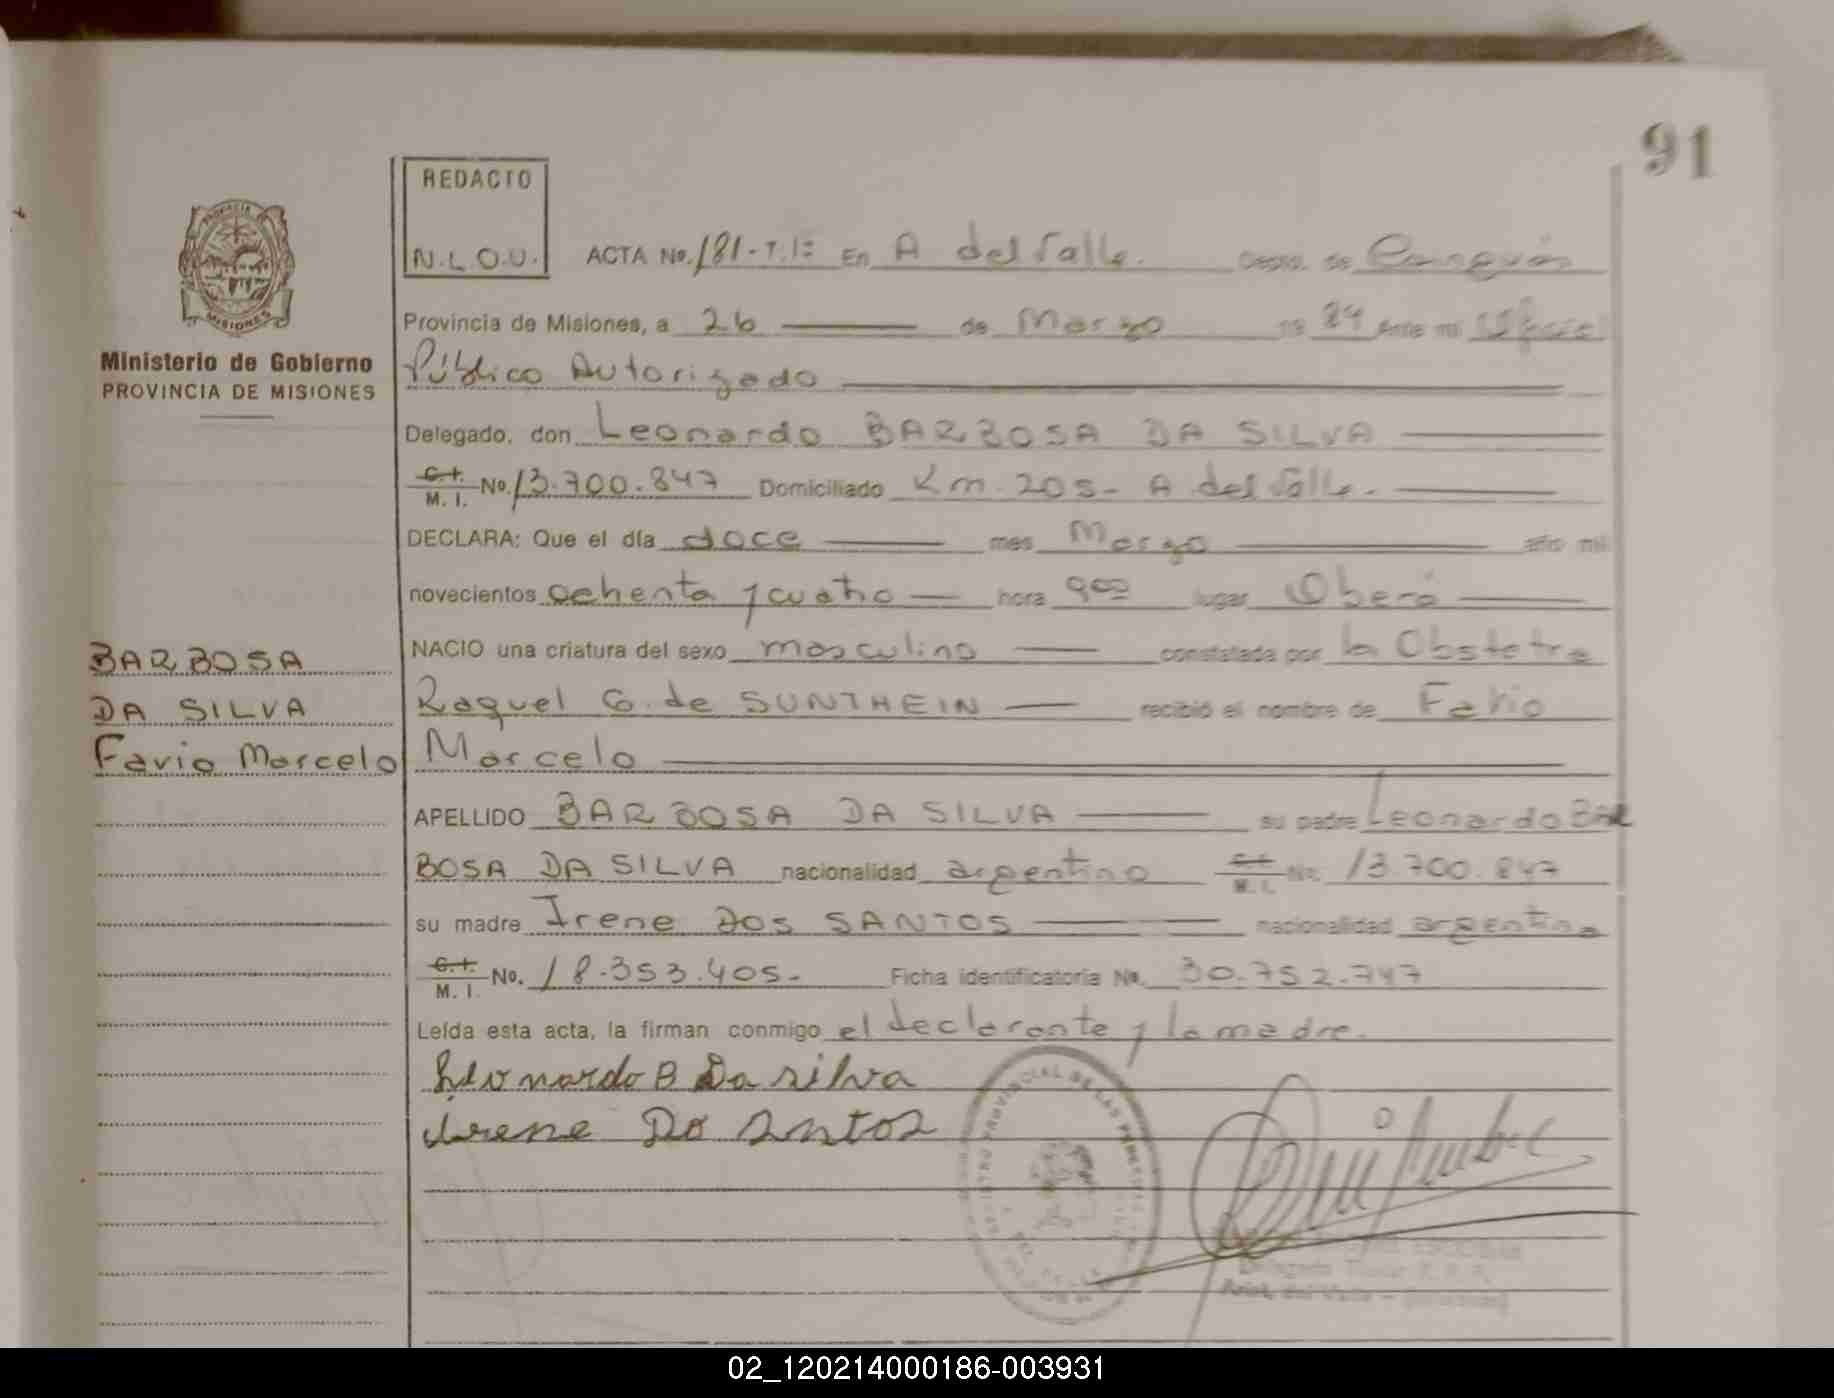 91
REDACTO
N.L.O.U.
ACTA No. 181-T.1º En A del Valle. Depto. de
PROVINCIA DE
MISIONES
Provincia de Misiones, a 26 de Marzo 19 84 Ante mi Oficial
Ministerio de Gobierno
PROVINCIA DE MISIONES
Público Autorizado
Delegado, don Leonardo BARBOSA DA SILVA
C.I. M. I. No. 13.700.847 Domiciliado Km. 205- A del Valle.
DECLARA: Que el día doce mes Marzo año mil
novecientos ochenta y cuatro hora 9oo lugar Oberá
NACIO una criatura del sexo masculino constatada por la Obstetra
BARBOSA
DA SILVA
Favio Marcelo
Raquel G. de SUNTHEIN recibió el nombre de Favio
Marcelo
APELLIDO BARBOSA DA SILVA su padre Leonardo BAR
BOSA DA SILVA nacionalidad argentino C.I. M. I. No. 13.700.847
su madre Irene DOS SANTOS nacionalidad argentina
C.I. M. I. No. 18.353.405- Ficha identificatoria No. 30.752.747
Leída esta acta, la firman conmigo el declarante y la madre.
Leonardo B Da silva
Irene Do santos
ESCOBAR
Delegado Titular R. P. P.
Arist. del Valle - (Misiones)
02_120214000186-003931